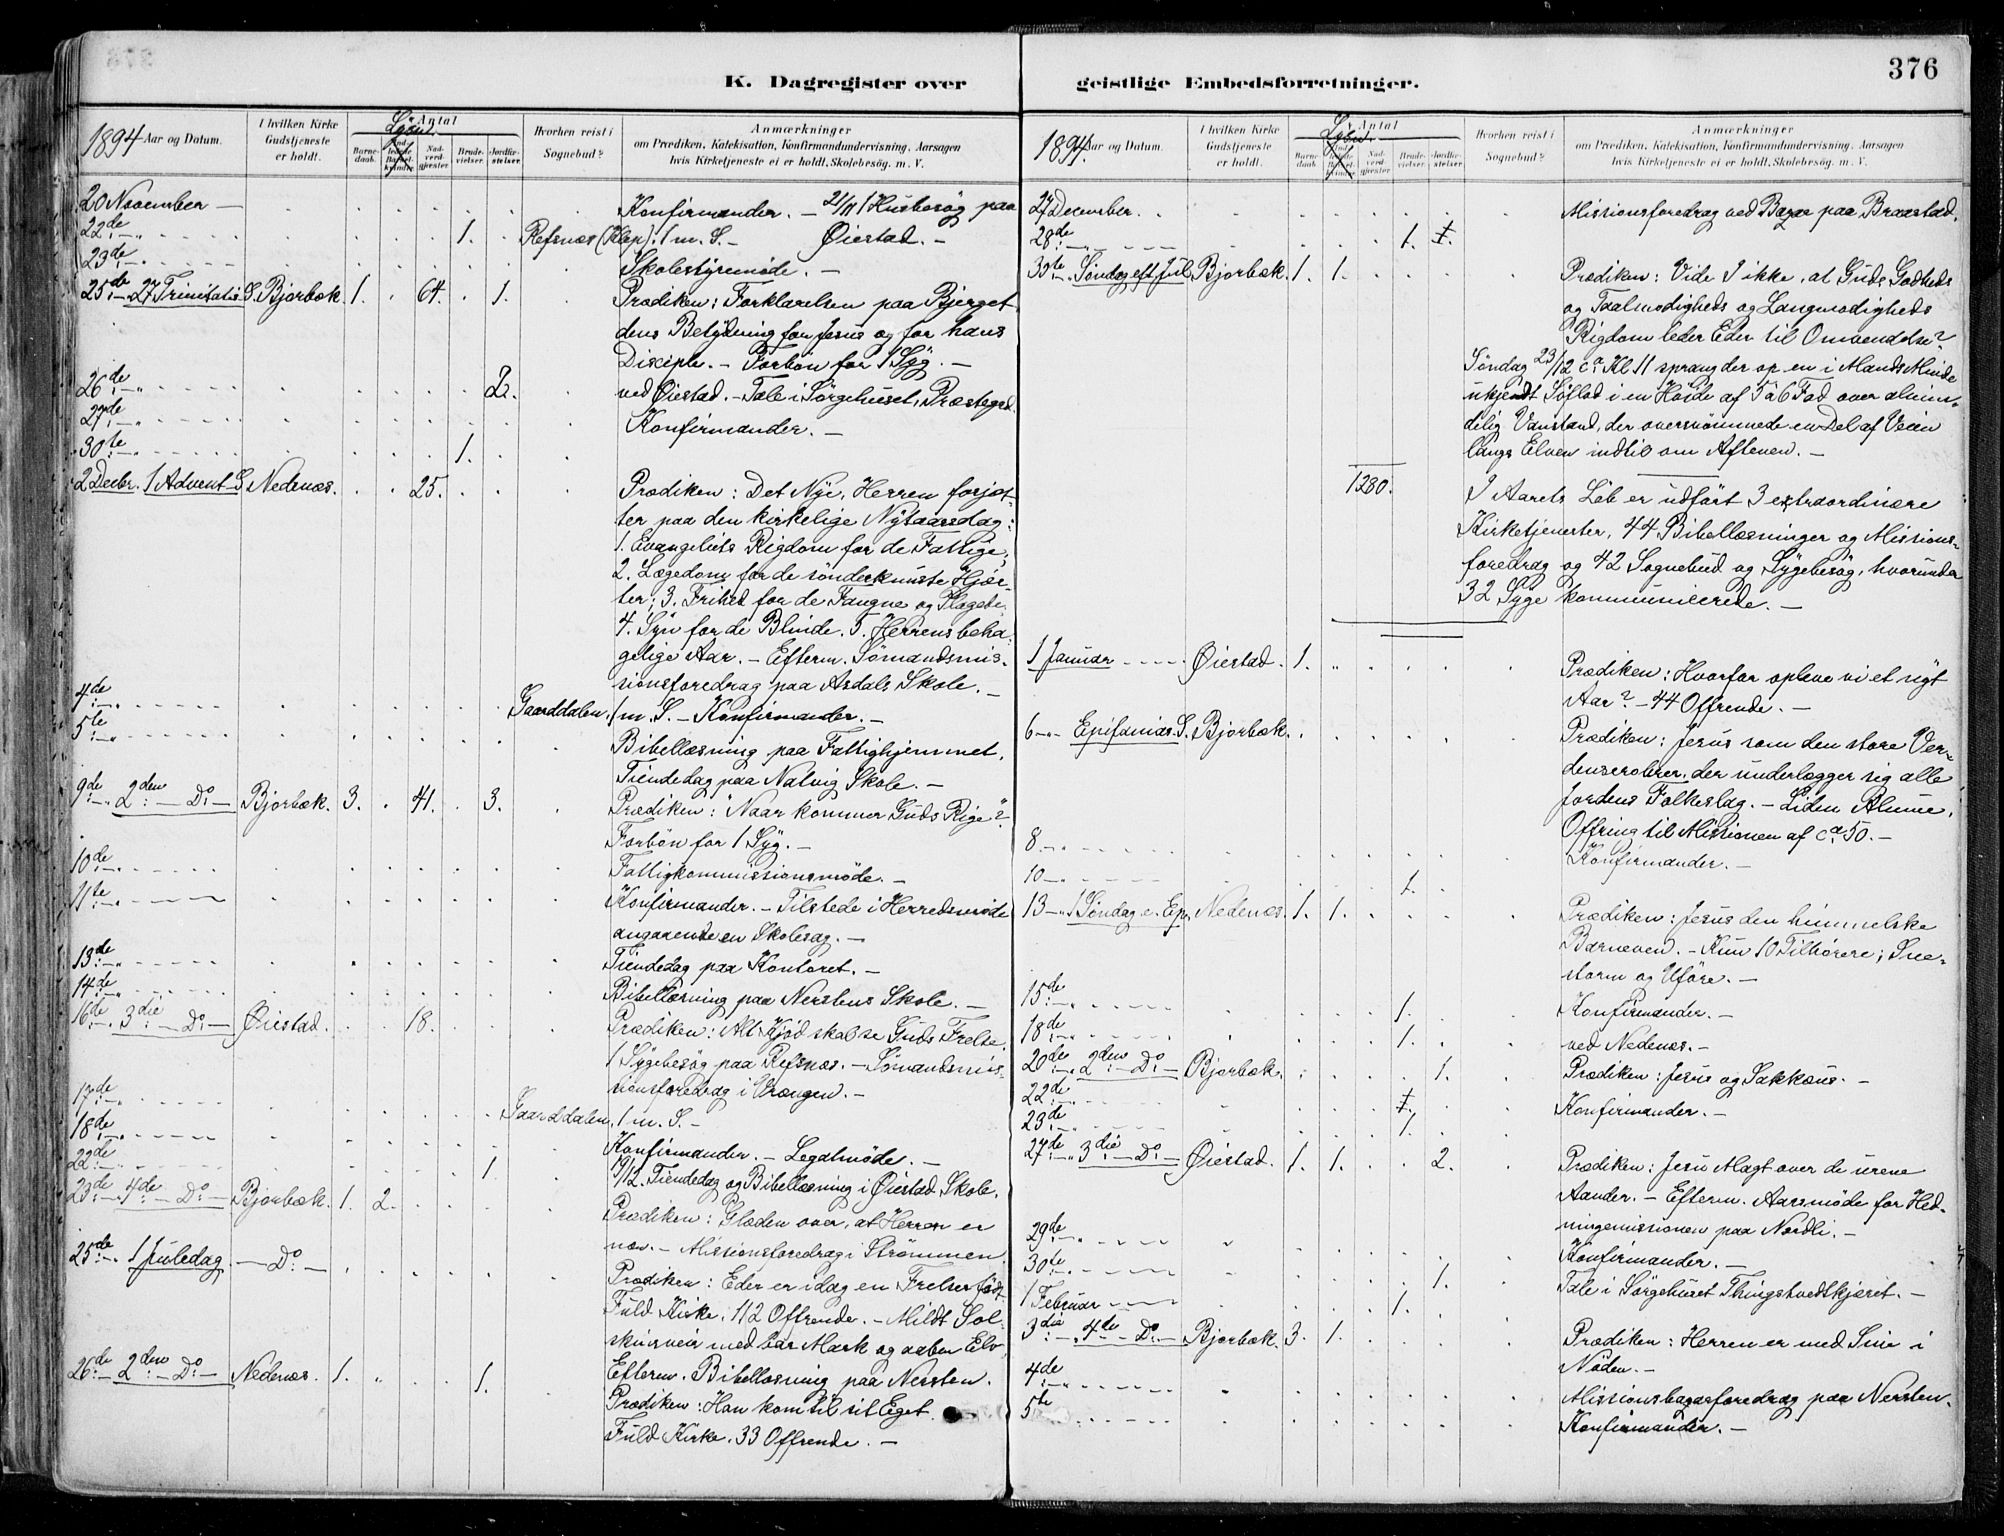 376
K. Dagregister over geistlige Embedsforretninger.
1894 Aar og Datum. I hvilken Kirke Gudstjeneste er holdt. Antal Barnedaab. Nadverdgjester Brudevielser. Jordfæstelser. Hvorhen reist i Sognebud? Anmærkninger om Prædiken, Katekisation, Konfirmandundervisning, Aarsagen hvis Kirketjeneste ei er holdt, Skolebesøg. m. V.
20 November — Konfirmander. — 21/11 1 Husbesøg paa
22de 1. Refsnæs (Klep). 1 m. S. — Øiestad. —
23de Skolestyremøde. —
25de 27 Trinitatis S. Bjorbæk 1. 64. 1. Prædiken: Forklarelsen paa Bjerget
dens Betydning for Jesus og for hans
Disciple. — Forbøn for 1 Syg. —
26de 2. ved Øiestad. — Tale i Sørgehuset, Præstegrd.
27de Konfirmander. —
30te 1.
2 Decbr. 1 Advent S. Nedenæs. 25. Prædiken: Det Nye, Herren forjæt-
ter paa den kirkelige Nytaarsdag:
1. Evangeliets Rigdom for de Fattige,
2. Lægedom for de sønderknuste Hjer-
ter; 3. Frihed for de Fangne og Plagede.
4. Syn for de Blinde. 5. Herrens beha-
gelige Aar. — Efterm. Sømandsmis-
sionsforedrag paa Asdals Skole. —
4de Gaarddalen. 1 m. S. — Konfirmander. —
5te Bibellæsning paa Fattighjemmet.
Tiendedag paa Natvig Skole. —
9de 2den Do Bjorbæk. 3. 41. 3. Prædiken: "Naar kommer Guds Rige"?
Forbøn for 1 Syg. —
10de Fattigkommissionsmøde. —
11te Konfirmander. — Tilstede i Herredsmøde
angaaende en Skolesag. —
13de Tiendedag paa Kontoret. —
14de Bibellæsning paa Nerstens Skole. —
16de 3die Do Øiestad. 18. Prædiken: Alt Kjød skal se Guds Frelse.
1 Sygebesøg paa Refsnæs. — Sømandsmis-
sionsforedrag i Vrængen. —
17de Gaarddalen, 1 m. S. —
18de Konfirmander. — Legatmøde. —
22de 1. 19/12. Tiendedag og Bibellæsning i Øiestad Skole.
23de 4de Do Bjorbæk. 1. 2. Prædiken: Glæden over, at Herren er
nær. — Missionsforedrag i Strømmen.
25de 1 Juledag. Do Prædiken: Eder er idag en Frelser født.
Fuld Kirke. 112 Offrende. — Mildt Sol-
skinsveir med bar Mark og aaben Elv.
Efterm. Bibellæsning paa Nersten.
26de 2den Do Nedenæs. 1. 1. Prædiken: Han kom til sit Eget.
Fuld Kirke. 33 Offrende. —
1894. Aar og Datum. I hvilken Kirke Gudstjeneste er holdt. Antal Barnedaab. Nadverdgjester Brudevielser. Jordfæstelser. Hvorhen reist i Sognebud? Anmærkninger om Prædiken, Katekisation, Konfirmandundervisning, Aarsagen hvis Kirketjeneste ei er holdt, Skolebesøg. m. V.
27 December. Missionsforedrag ved Bazar paa Braastad.
28de 1. 1.
30te Søndag eft Jul Bjorbæk. 1. 1. Prædiken: Vide I ikke, at Guds Godheds
og Taalmodigheds og Langmodigheds
Rigdom leder Eder til Omvendelse?
Søndag 23/12 ca Kl 11 sprang der op en i Mands Minde
ukjendt Søflod i en Høide af 5 à 6 Fod over almin-
delig Vanstand, der oversvømmede en Del af Veien
langs Elven indtil om Aftenen. —
1280. I Aarets Løb er udført 3 extraordinære
Kirketjenester, 44 Bibellæsninger og Missions-
foredrag og 42 Sognebud og Sygebesøg, hvorunder
32 Syge kommunicerede. —
1 Januar Øiestad. 1. Prædiken: Hvorfor opleve vi et nyt
Aar? — 44 Offrende. —
6 Epifanias S. Bjorbæk. Prædiken: Jesus som den store Ver-
denserobrer, der underlægger sig alle
Jordens Folkeslag. — Liden Almue.
Offring til Missionen af ca 50. —
8 Konfirmander. —
10 1.
13 1 Søndag e. Ep. Nedenæs. 1. 1. Prædiken: Jesus den himmelske
Barneven. — Kun 10 Tilhørere; Sne-
storm og Uføre. —
15de 1. Konfirmander. —
18de 1. ved Nedenæs. —
20de 2den Do Bjorbæk. 1. Prædiken: Jesus og Sakkæus. —
22de 1. Konfirmander. —
23de 1.
27de 3die Do Øiestad. 1. 1. 2. Prædiken: Jesu Magt over de urene
Aander. — Efterm. Aarsmøde for Hed-
ningemissionen paa Nordli. —
29de Konfirmander. —
30te 1. Tale i Sørgehuset Thingstvedtkjæret. —
1 Februar 1.
3die 4de Do Bjorbæk. 3. 1. Prædiken: Herren er med Sine i
Nøden. —
4de Missionsbazarforedrag paa Nersten.
5te Konfirmander. —